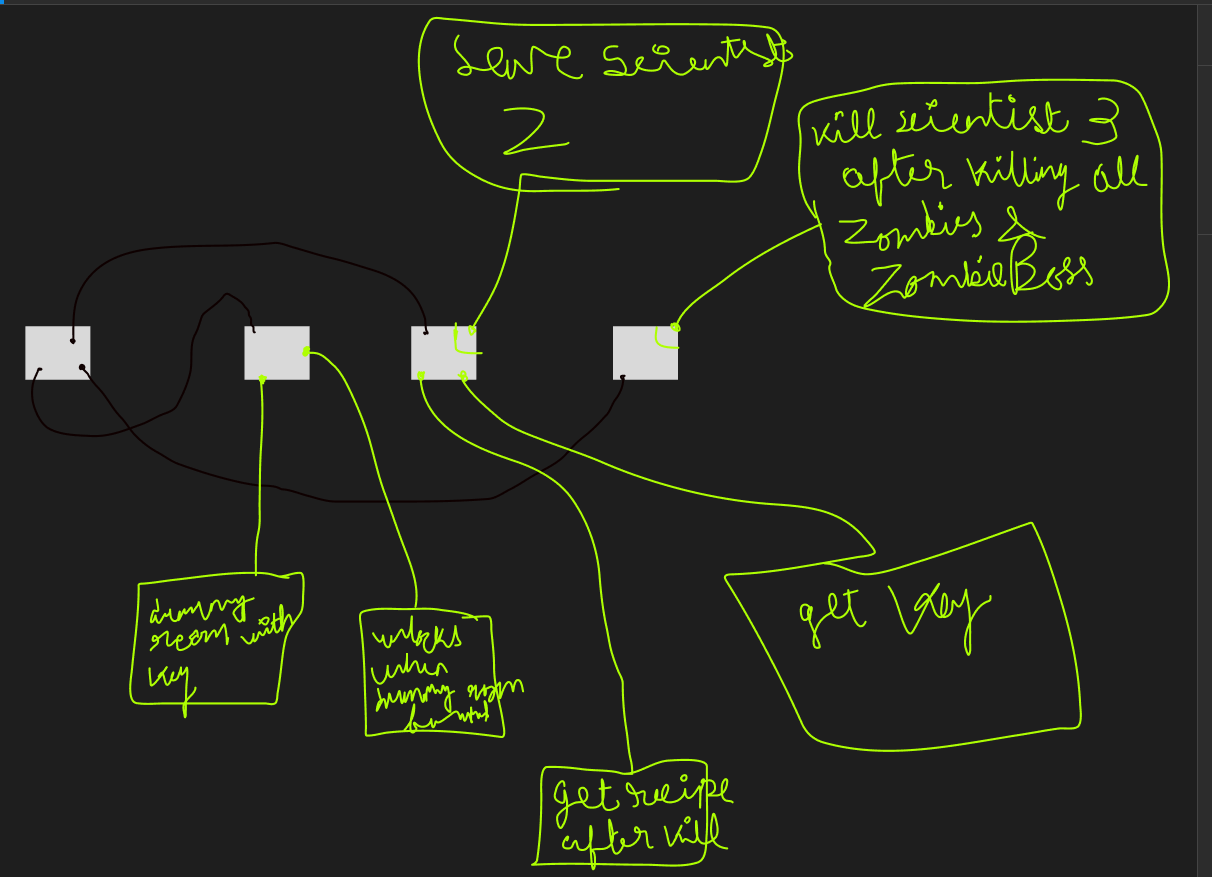 Save Scientists
2
Kill scientist 3
after killing all
Zombies &
Zombie Boss
dummy
room with
key
unlocks
when
dummy room
get key
get recipe
after kill